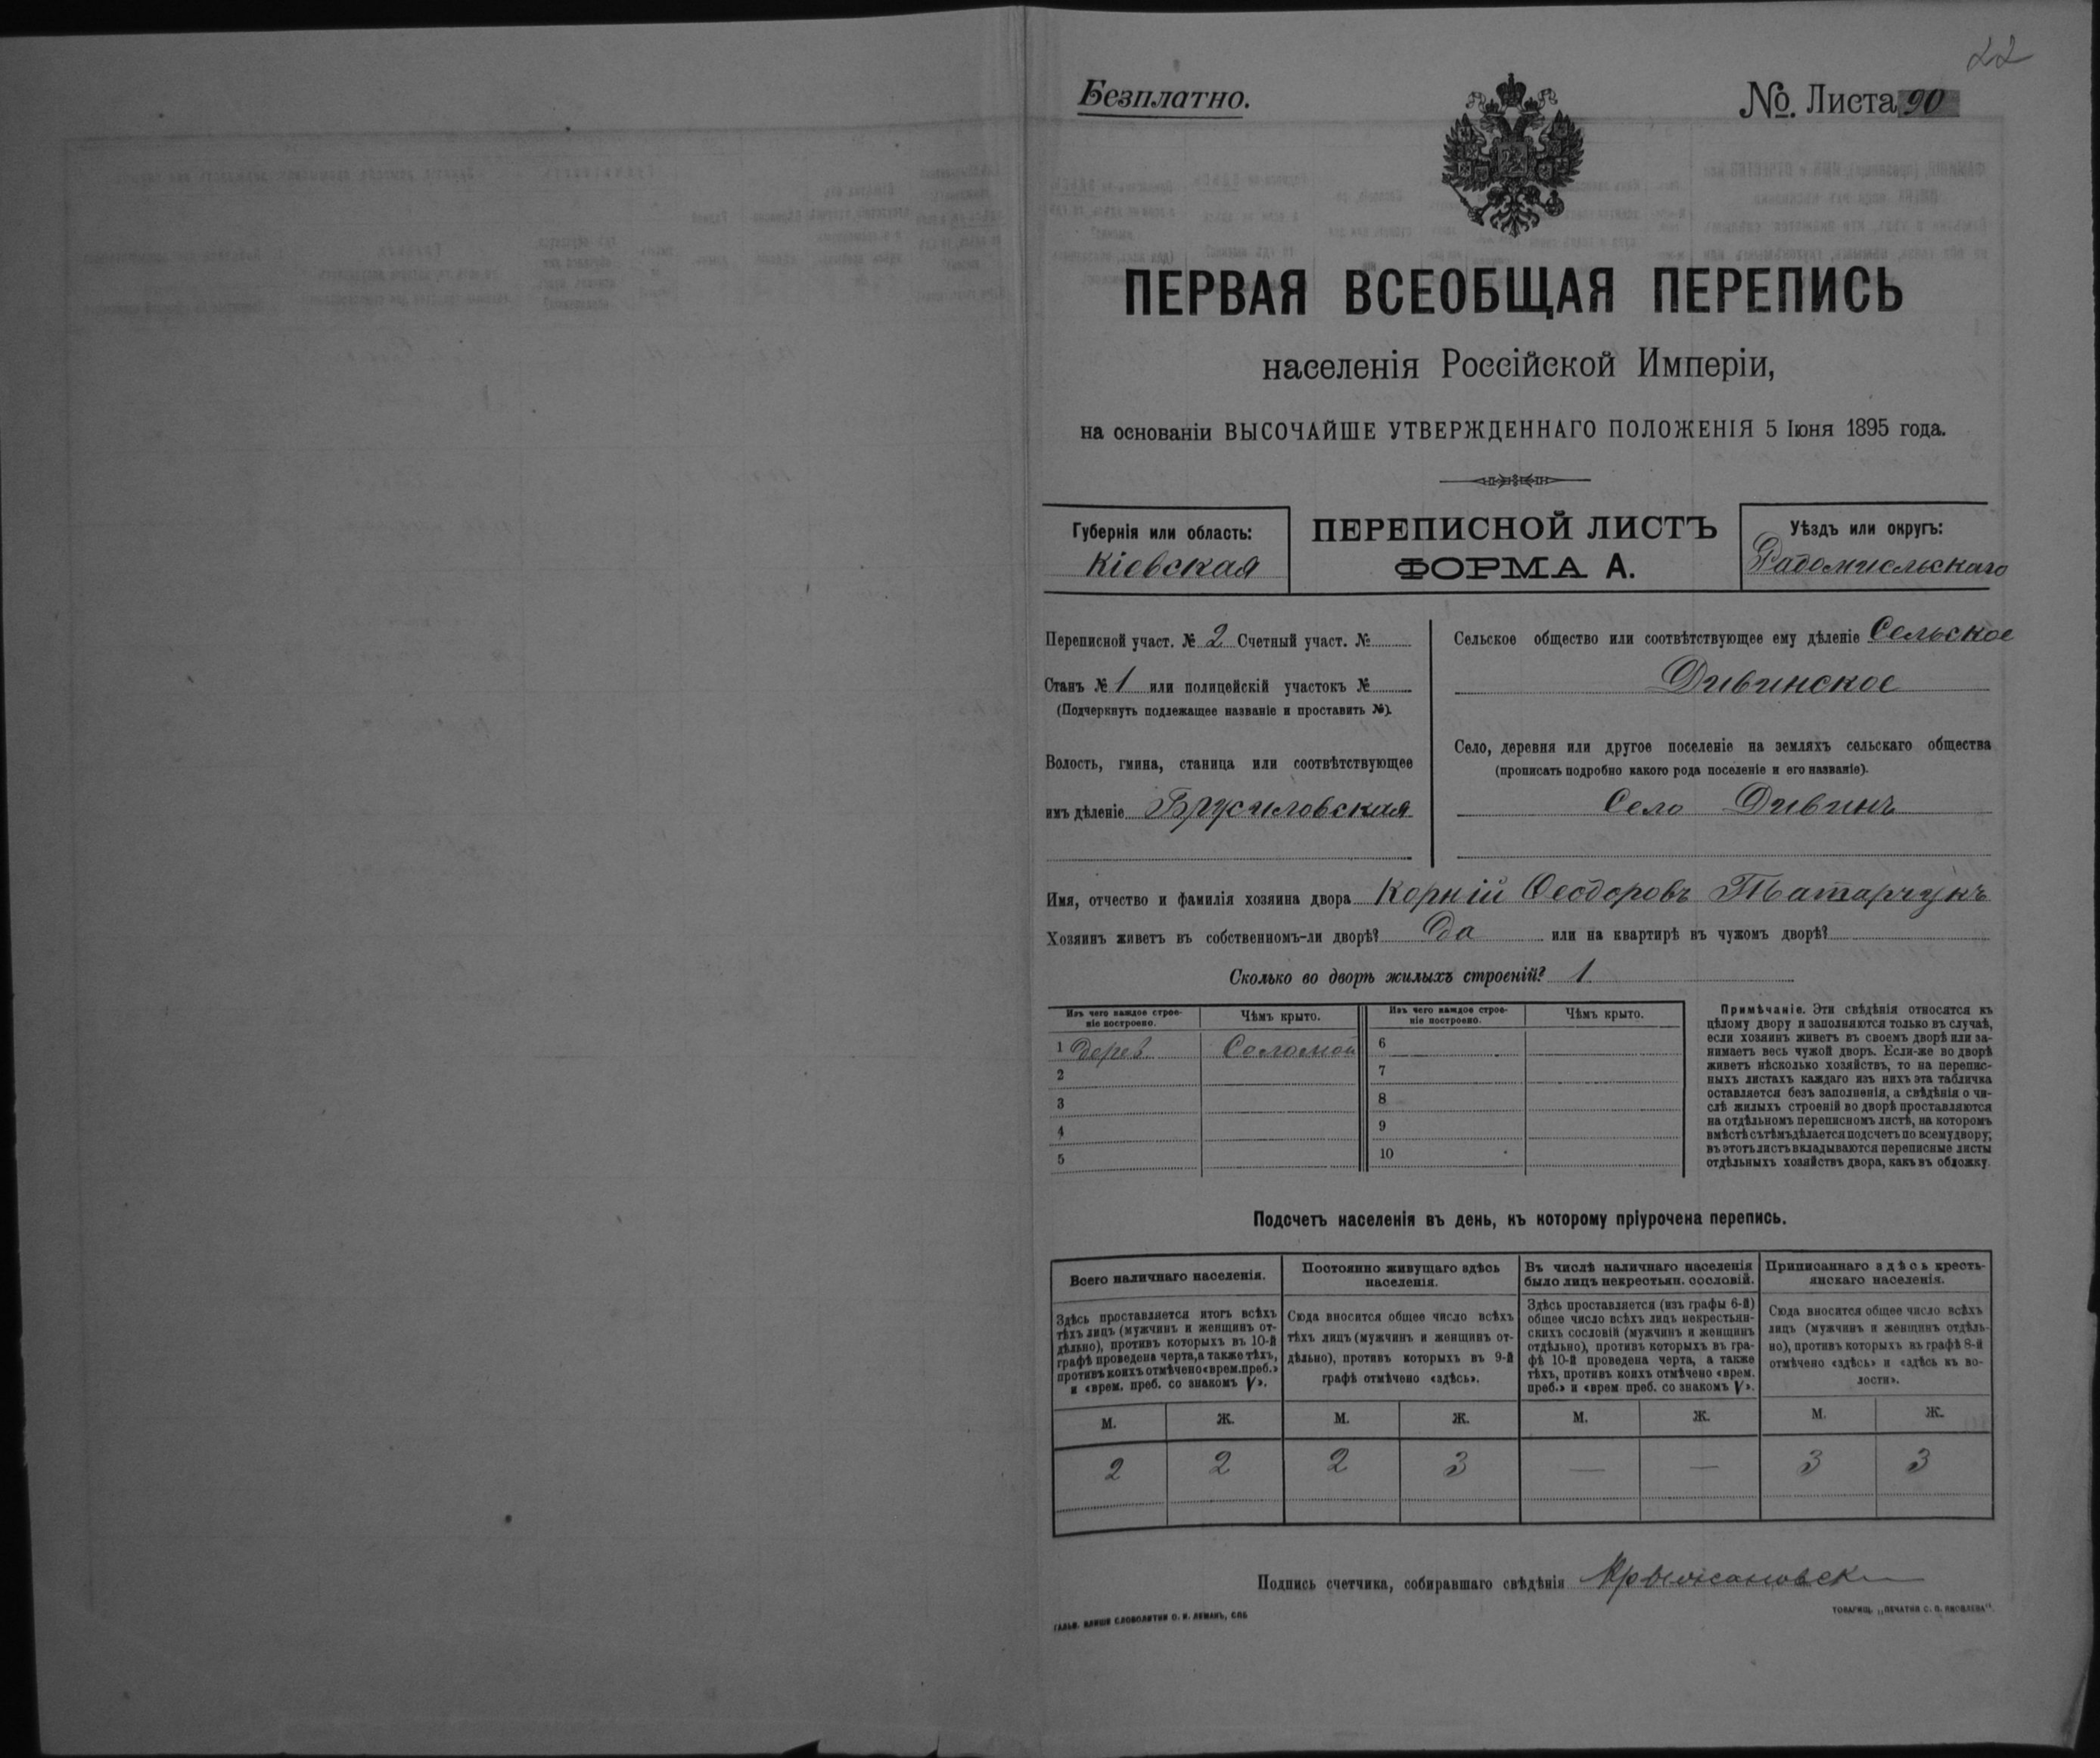 22
Безплатно.
№. Листа 90
ПЕРВАЯ ВСЕОБЩАЯ ПЕРЕПИСЬ
населенія Россійской Имперіи,
на основаніи ВЫСОЧАЙШЕ УТВЕРЖДЕННАГО ПОЛОЖЕНІЯ 5 Іюня 1895 года.
Губернія или область:
Кіевская
ПЕРЕПИСНОЙ ЛИСТЪ
ФОРМА А.
Уѣздъ или округъ:
Радомысльскаго
Переписной участ. № 2 Счетный участ. №
Станъ № 1 или полицейскій участокъ №
(Подчеркнуть подлежащее названіе и проставить №).
Волость, гмина, станица или соотвѣтствующее
имъ дѣленіе Брусиловская
Сельское общество или соотвѣтствующее ему дѣленіе Сельское
Дивинское
Село, деревня или другое поселеніе на земляхъ сельскаго общества
(прописать подробно какого рода поселеніе и его названіе).
Село Дивинъ
Имя, отчество и фамилія хозяина двора Корній Ѳеодоровъ Татарчукъ
Хозяинъ живетъ въ собственномъ-ли дворѣ? Да или на квартирѣ въ чужомъ дворѣ?
Сколько во дворѣ жилыхъ строеній? 1
Изъ чего каждое строе-
ніе построено.
Чѣмъ крыто.
1 дерев. Соломой
2
3
4
5
Изъ чего каждое строе-
ніе построено.
Чѣмъ крыто.
6
7
8
9
10
Примѣчаніе. Эти свѣдѣнія относятся къ
цѣлому двору и заполняются только въ случаѣ,
если хозяинъ живетъ въ своемъ дворѣ или за-
нимаетъ весь чужой дворъ. Если-же во дворѣ
живетъ нѣсколько хозяйствъ, то на перепис-
ныхъ листахъ каждаго изъ нихъ эта табличка
оставляется безъ заполненія, а свѣдѣнія о чи-
слѣ жилыхъ строеній во дворѣ проставляются
на отдѣльномъ переписномъ листѣ, на которомъ
вмѣстѣ съ тѣмъ дѣлается подсчетъ по всему двору;
въ этотъ листъ вкладываются переписные листы
отдѣльныхъ хозяйствъ двора, какъ въ обложку.
Подсчетъ населенія въ день, къ которому пріурочена перепись.
Всего наличнаго населенія.
Здѣсь проставляется итогъ всѣхъ
тѣхъ лицъ (мужчинъ и женщинъ от-
дѣльно), противъ которыхъ въ 10-й
графѣ проведена черта, а также тѣхъ,
противъ коихъ отмѣчено «врем. преб.»
и «врем. преб. со знакомъ V».
М. Ж.
2 2
Постоянно живущаго здѣсь
населенія.
Сюда вносится общее число всѣхъ
тѣхъ лицъ (мужчинъ и женщинъ от-
дѣльно), противъ которыхъ въ 9-й
графѣ отмѣчено «здѣсь».
М. Ж.
2 3
Въ числѣ наличнаго населенія
было лицъ некрестьян. сословій.
Здѣсь проставляется (изъ графы 6-й)
общее число всѣхъ лицъ некрестьян-
скихъ сословій (мужчинъ и женщинъ
отдѣльно), противъ которыхъ въ гра-
фѣ 10-й проведена черта, а также
тѣхъ, противъ коихъ отмѣчено «врем.
преб.» и «врем. преб. со знакомъ V».
М. Ж.
— —
Приписаннаго здѣсь кресть-
янскаго населенія.
Сюда вносится общее число всѣхъ
лицъ (мужчинъ и женщинъ отдѣль-
но), противъ которыхъ въ графѣ 8-й
отмѣчено «здѣсь» и «здѣсь въ во-
лости».
М. Ж.
3 3
Подпись счетчика, собиравшаго свѣдѣнія
ГАЛЬВ. КЛИШЕ СЛОВОЛИТНИ О. И. ЛЕМАНЪ, СПБ
ТОВАРИЩ. „ПЕЧАТНЯ С. П. ЯКОВЛЕВА“.